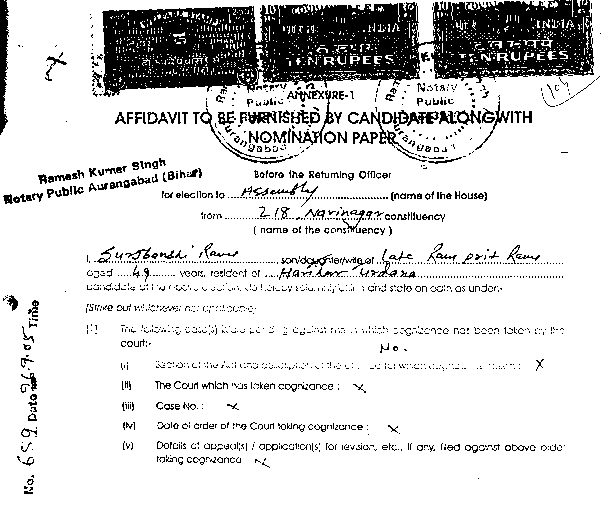 INDIA
TEN RUPEES
TEN RUPEES
Notary
Public
Aurangabad
Notary
Public
Aurangabad
ANNEXURE-1
AFFIDAVIT TO BE FURNISHED BY CANDIDATE ALONGWITH
NOMINATION PAPER
Ramesh Kumar Singh
Notary Public Aurangabad (Bihar)
Before the Returning Officer
for election to Assembly (name of the House)
from 218 Navinagar constituency
( name of the constituency )
I, Surjbanshi Ram son/daughter/wife of late Ram Ram
aged 49 years, resident of
candidate at the above election, do hereby solemnly affirm and state on oath as under:-
(Strike out whichever not applicable)
The following case(s) is/are pending against me in which cognizance has been taken by the
court:- No.
(i) Section of the Act and description of the offence for which cognizance taken : X
(ii) The Court which has taken cognizance : X
(iii) Case No. : X
(iv) Date of order of the Court taking cognizance : X
(v) Details of appeal(s) / application(s) for revision, etc., if any, filed against above order
taking cognizance X
No. 659 Date 26.9.05 Time